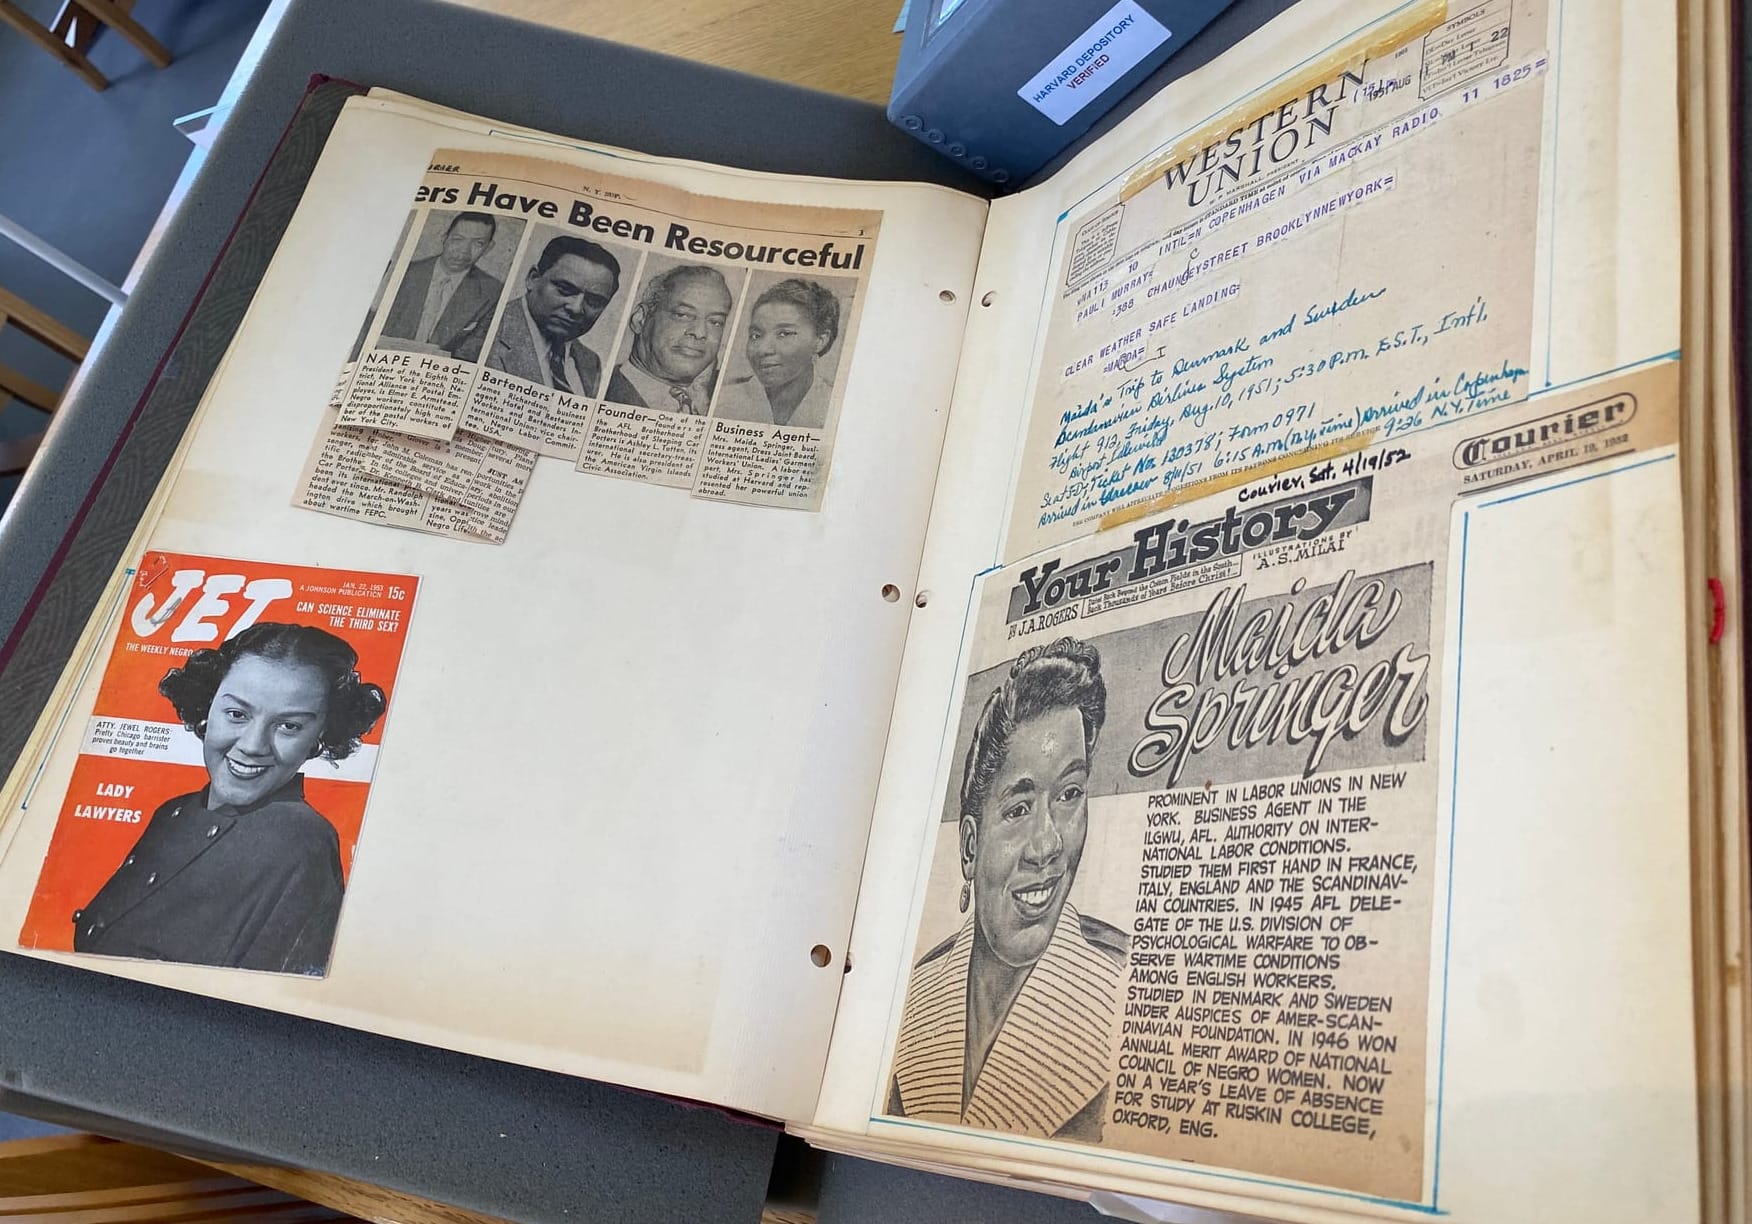 HARVARD DEPOSITORY
VERIFIED
N. Y. SUP.
3
ers Have Been Resourceful
NAPE Head—
President of the Eighth Dis-
trict, New York branch, Na-
tional Alliance of Postal Em-
ployes, is Elmer E. Armstead.
Negro workers constitute a
disproportionately high num-
ber of the postal workers of
New York City.
Bartenders' Man
James Richardson, business
agent, Hotel and Restaurant
Workers and Bartenders In-
ternational Union; vice chair-
man, Negro Labor Commit-
tee, USA.
Founder—One of the
founders of
the AFL Brotherhood of
Sleeping Car
Porters is Ashley L. Totten, its
international secretary-treas-
urer. He is also president of
the American Virgin Islands
Civic Association.
Business Agent—
Mrs. Maida Springer, busi-
ness agent, Dress Joint Board,
International Ladies' Garment
Workers' Union. A labor ex-
pert, Mrs. Springer has
studied at Harvard and rep-
resented her powerful union
abroad.
headed the March-on-Wash-
ington drive which brought
about wartime FEPC.
JET
JAN. 22, 1953 15c
A JOHNSON PUBLICATION
CAN SCIENCE ELIMINATE
THE THIRD SEX?
THE WEEKLY NEGRO
ATTY. JEWEL ROGERS:
Pretty Chicago barrister
proves beauty and brains
go together
LADY
LAWYERS
WESTERN
UNION
1951 AUG
22
SYMBOLS
MARSHALL, PRESIDENT
WNA113 10 INTL=N COPENHAGEN VIA MACKAY RADIO 11 1825=
PAULI MURRAY=
C
=388 CHAUNGEYSTREET BROOKLYNNEWYORK=
CLEAR WEATHER SAFE LANDING=
=MAODA=
I
Maida's Trip to Denmark and Sweden
Scandinavian Airlines System
Flight 912, Friday, Aug. 10, 1951; 5:30 P.M. E.S.T., Int'l.
Airport, Idlewild
Seat 5D; Ticket No. 130378; Form 0971
Arrived in 8/11/51 6:15 A.M. (N.Y. Time) Arrived in Copenhagen
9:26 N.Y. Time
THE COMPANY WILL APPRECIATE SUGGESTIONS FROM ITS PATRONS CONCERNING ITS SERVICE
Courier, Sat. 4/19/52
Courier
SATURDAY, APRIL 19, 1952
Your History
ILLUSTRATIONS BY
A.S. MILAI
BY J.A. ROGERS
Dates Back Beyond the Cotton Fields in the South—
Back Thousands of Years Before Christ!—
Maida
Springer
PROMINENT IN LABOR UNIONS IN NEW
YORK. BUSINESS AGENT IN THE
ILGWU, AFL. AUTHORITY ON INTER-
NATIONAL LABOR CONDITIONS.
STUDIED THEM FIRST HAND IN FRANCE,
ITALY, ENGLAND AND THE SCANDINAV-
IAN COUNTRIES. IN 1945 AFL DELE-
GATE OF THE U.S. DIVISION OF
PSYCHOLOGICAL WARFARE TO OB-
SERVE WARTIME CONDITIONS
AMONG ENGLISH WORKERS.
STUDIED IN DENMARK AND SWEDEN
UNDER AUSPICES OF AMER-SCAN-
DINAVIAN FOUNDATION. IN 1946 WON
ANNUAL MERIT AWARD OF NATIONAL
COUNCIL OF NEGRO WOMEN. NOW
ON A YEAR'S LEAVE OF ABSENCE
FOR STUDY AT RUSKIN COLLEGE,
OXFORD, ENG.